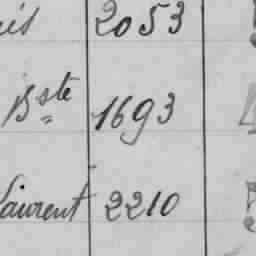 2053
Bste 1693
Laurent 2210